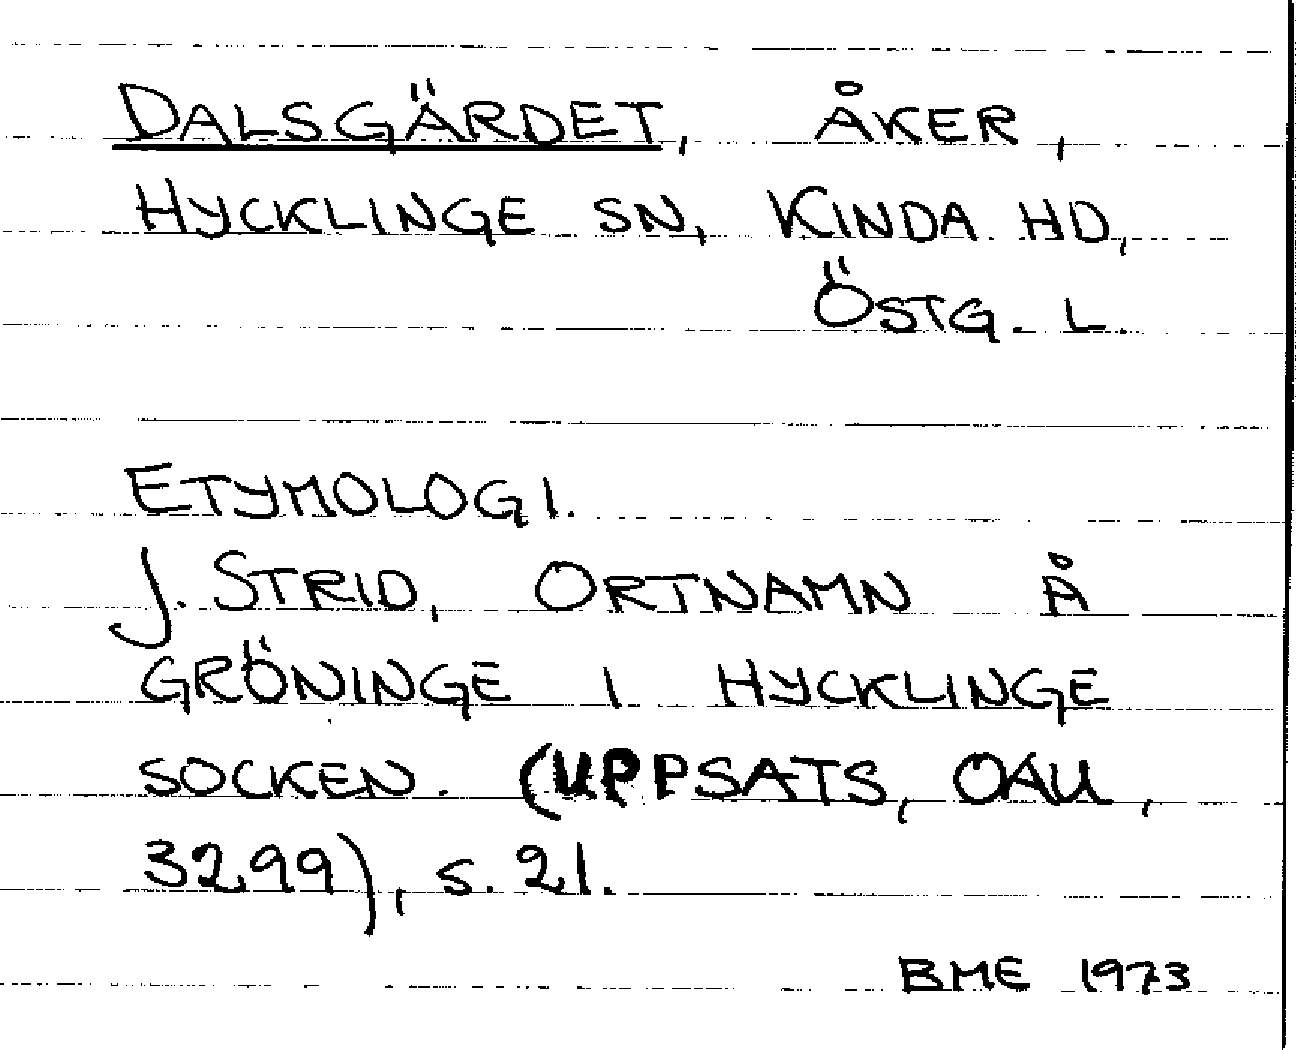 DALSGÄRDET, ÅKER,
HYCKLINGE SN, KINDA HD,
ÖSTG. L.
ETYMOLOGI.
J. STRID, ORTNAMN Å
GRÖNINGE I HYCKLINGE
SOCKEN. (UPPSATS, OAU,
3299), S. 21.
BME 1973